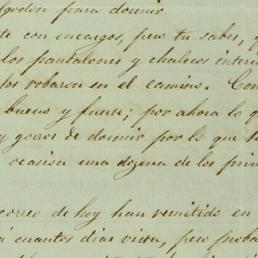 algodon para dormir.
te con encargos, pero tu sabes, q
los pantalones y chalecos interi
los robaron en el camino. Com
bueno y fuerte; por ahora lo q
y gorros de dormir por lo que te
ocasion una dozena de los prim
correo de hoy han remitido en
cuantos dias vista, pero proba